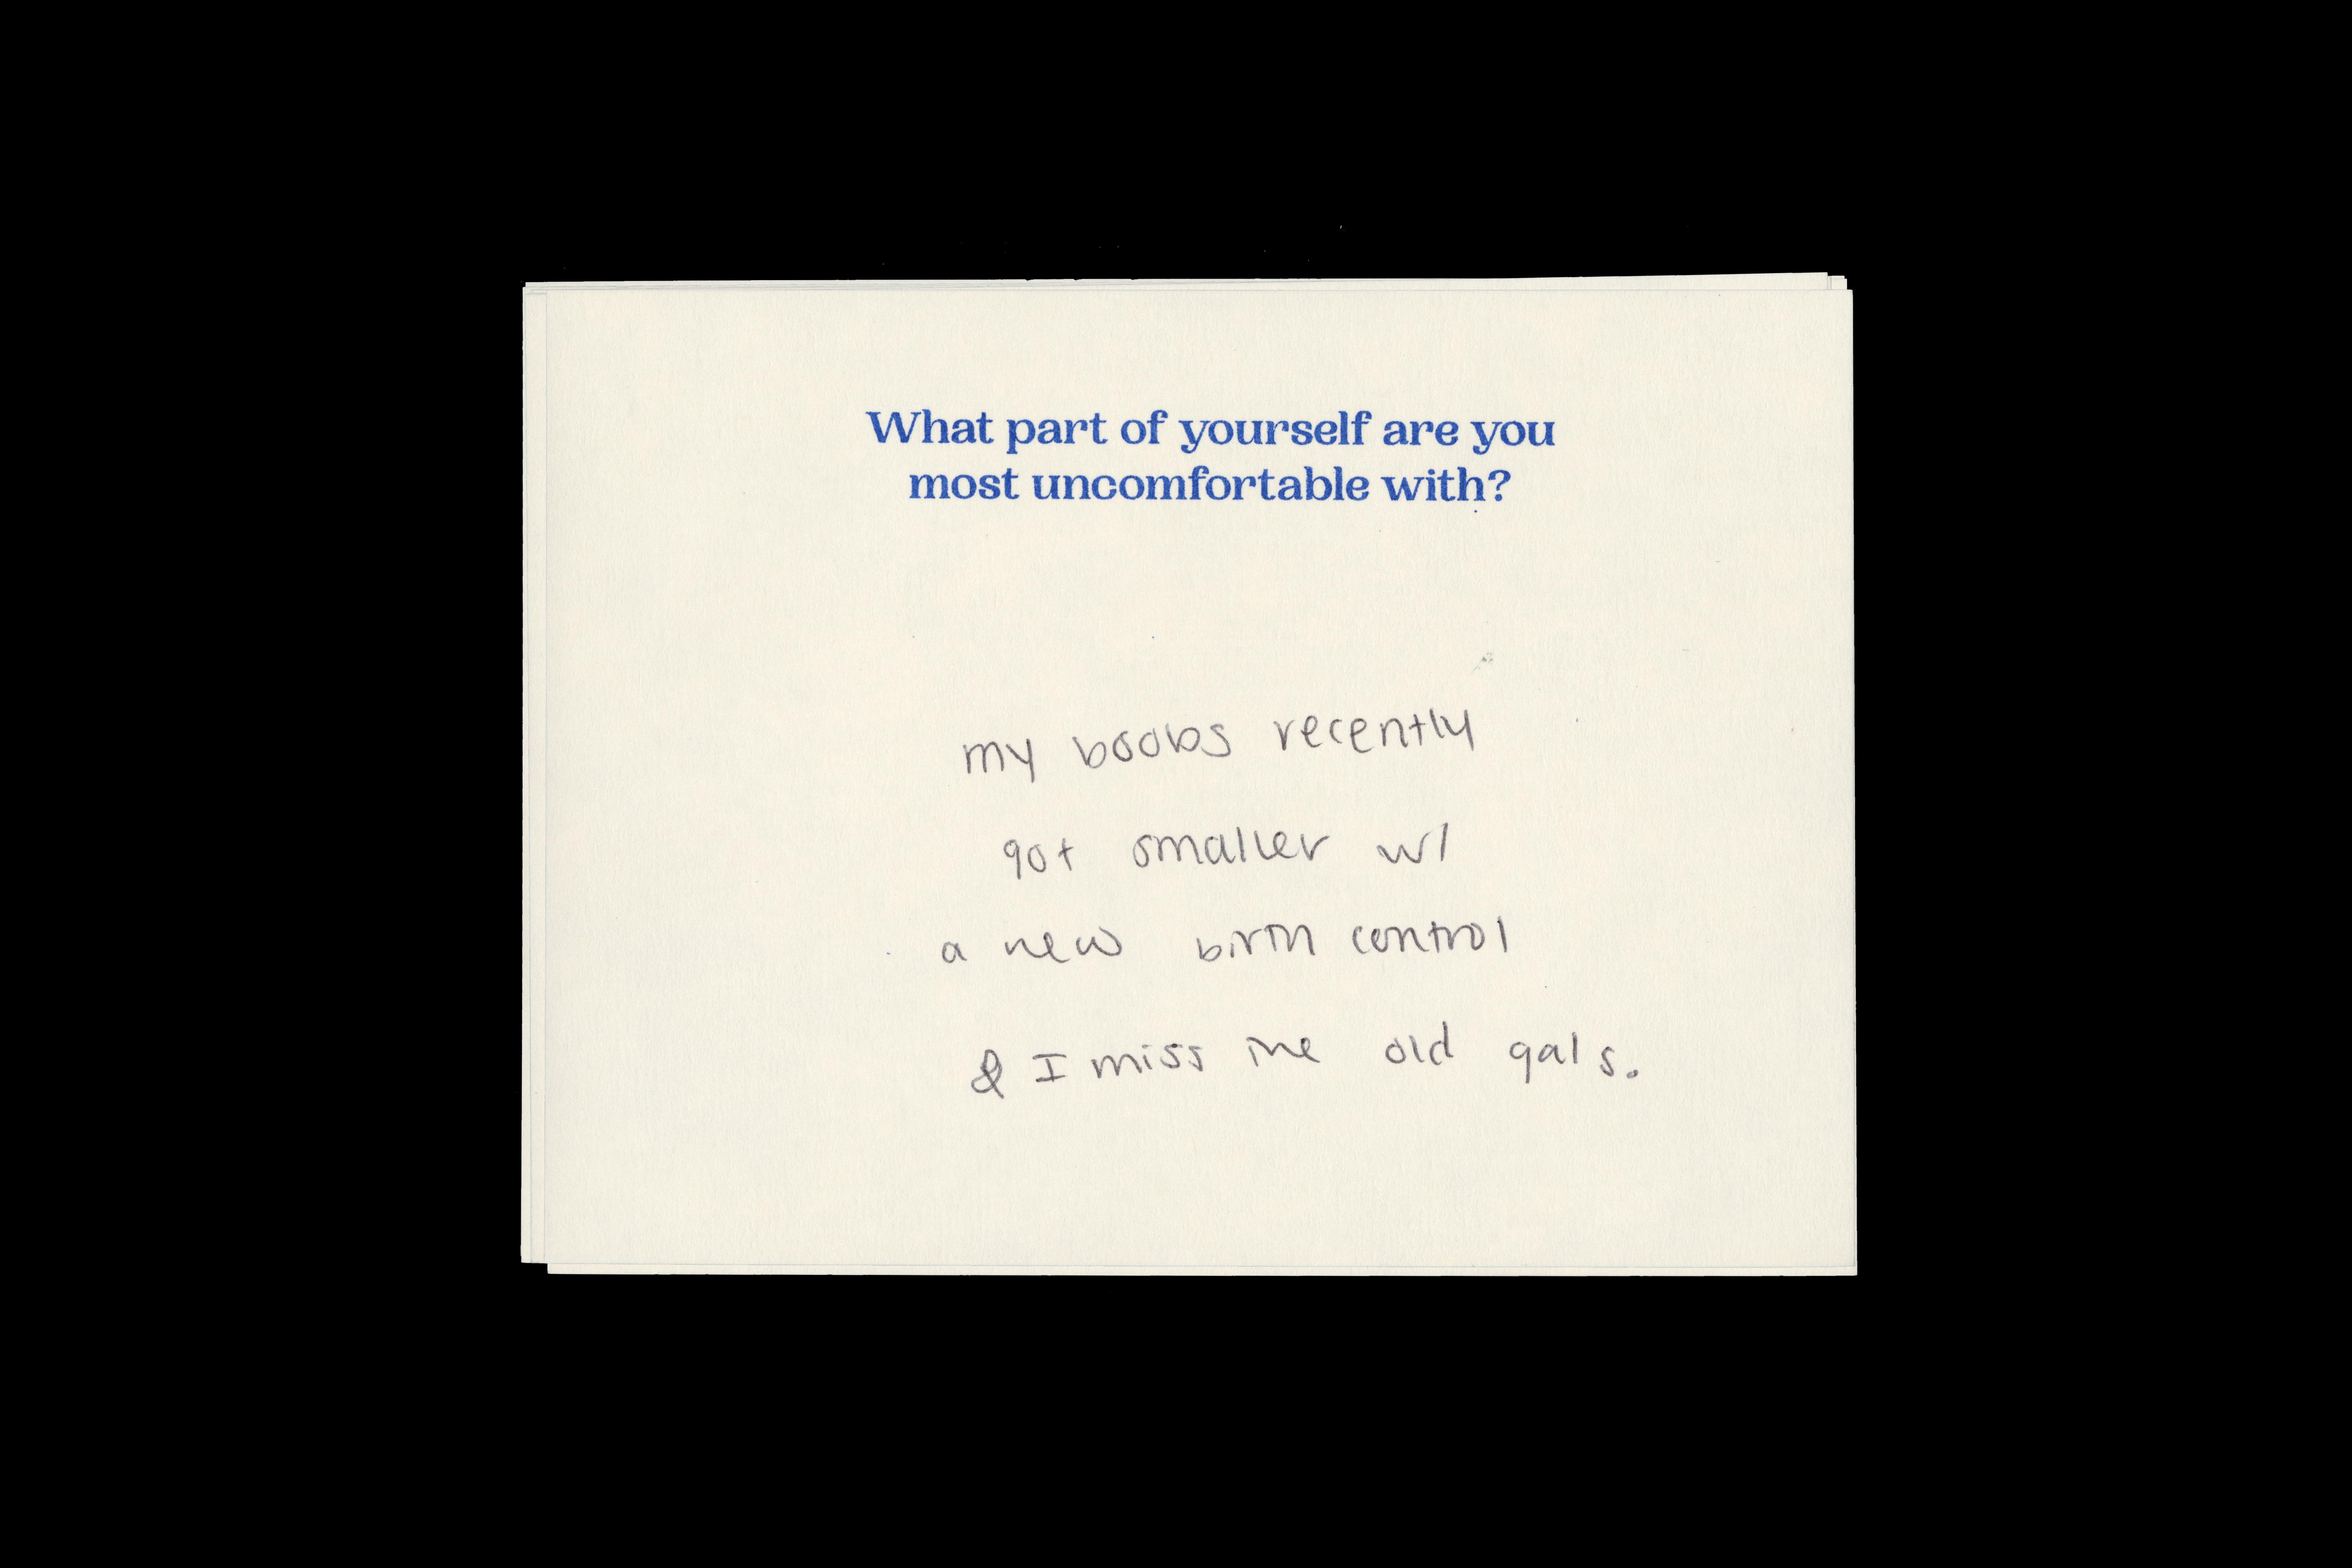 What part of yourself are you
most uncomfortable with?
my boobs recently
got smaller w/
a new birth control
& I miss the old gals.